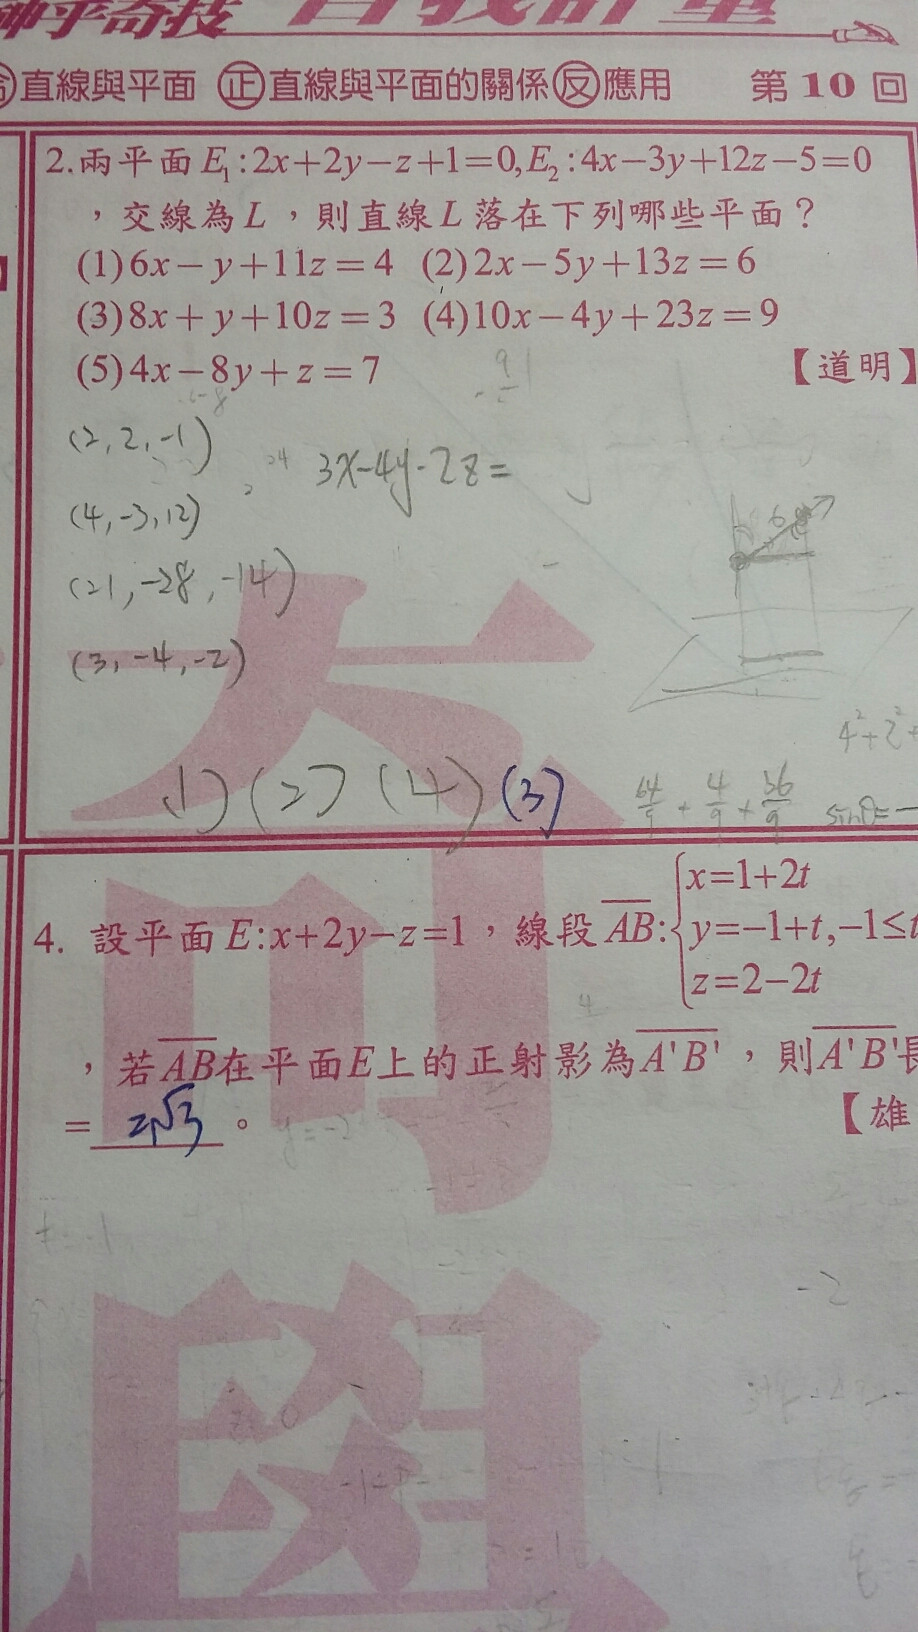 直線與平面 正 直線與平面的關係 反 應用 第10回
2.兩平面E₁:2x+2y−z+1=0,E₂:4x−3y+12z−5=0
，交線為L，則直線L落在下列哪些平面？
(1)6x−y+11z=4 (2)2x−5y+13z=6
(3)8x+y+10z=3 (4)10x−4y+23z=9
(5)4x−8y+z=7 【道明】
(2,2,-1)
3x-4y-2z=
(4,-3,12)
(21,-28,-14)
(3,-4,-2)
(1)(2)(4)(3)
64/9+4/9+36/9 sinθ=
4²+2²+
4. 設平面E:x+2y−z=1，線段AB:{x=1+2t
y=−1+t,−1≤t
z=2−2t
，若AB在平面E上的正射影為A'B'，則A'B'長
=2√3。 【雄